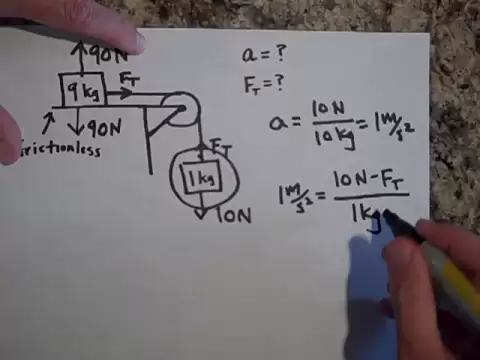 90N
9kg
F_T
90N
frictionless
F_T
1kg
10N
a = ?
F_T = ?
a = 10N/10kg = 1 m/s²
1 m/s² = 10N - F_T/1kg